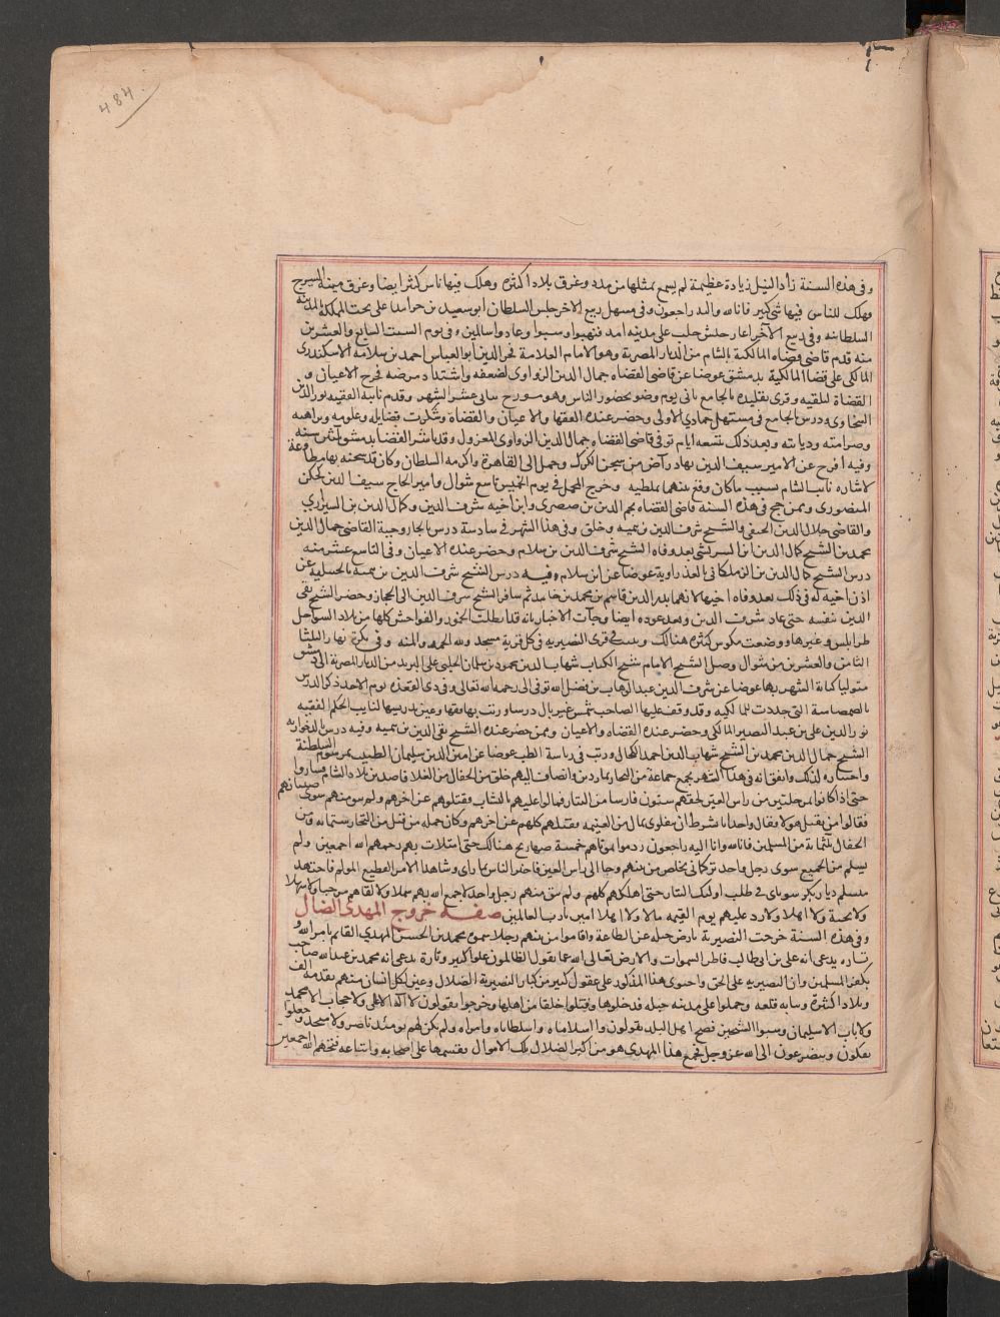 484
وفى هذه السنة زاد النيل زيادة عظيمة لم يسمع بمثلها من مدد وغرق بلادا كثيره وهلك فيها ناس كثر ايضا وغرق منية السيرج
وهلك للناس فيها شى كبير فانا لله والـيه راجعون وفى مستهل ربيع الاخر جلس السلطان ابو سعيد بن خرابندا على تحت المملكة
السلطانيه وفى ربيع الاخر اغار جيش حلب على مدينه امد فنهبوا وسبوا وعادوا سالمين وفى يوم السبت السابع والعشرين
منه قدم قاضى قضاه المالكية بالشام من الديار المصرية وهو الامام العلامة فخر الدين ابو العباس احمد بن سلامه الاسكندرى
المالكى على قضا المالكية بدمشق عوضا عن قاضى القضاه جمال الدين الزواوى لضعفه واشتداد مرضه فخرج الاعيان و
القضاة لتلقيه وقرى تقليده بالجامع ثانى يوم وصوله بحضور الناس وهو مورخ بثانى عشر الشهر وقدم نائبه الفقيه نور الدين
السخاوى ودرس بالجامع فى مستهل جمادى الاولى وحضر عنده الفقها والاعيان والقضاة وشكرت فضايله وعلومه ونزاهته
وصرامته وديانته وبعد ذلك بتسعه ايام توفى قاضى القضاه جمال الدين الزواوى المعزول وقد باشر القضا بدمشق ثلثين سنه
وفيه افرج عن الامير سيف الدين بهادر آص من سجن الكرك وحمل الى القاهرة واكرمه السلطان وكان قد سجنه بها مطاوعة
لاشاره نائب الشام بسبب ماكان وقع بينهما بملطيه وخرج المحمل فى يوم الخميس تاسع شوال وامير الحاج سيف الدين
المنصورى وممن حج فى هذه السنه قاضى القضاه نجم الدين بن صصرى وابن اخيه شرف الدين وكمال الدين بن الشيرازى
والقاضى جلال الدين الحنفى والشيخ شرف الدين بن تيميه وخلق وفى هذا الشهر فى سادسة درس بالجاروخية القاضى جمال الدين
محمد بن الشيخ كمال الدين ابن الشريشى بعد وفاه الشيخ شرف الدين بن سلام وحضر عنده الاعيان وفى التاسع عشر منه
درس الشيخ كمال الدين بن الزملكانى بالعذراوية عوضا عن ابن سلام وفيه درس الشيخ شرف الدين بن تيميه بالحنبلية عن
اذن اخيه له فى ذلك بعد وفاه اخيهما لامهما بدر الدين قاسم بن محمد بن خالد ثم سافر الشيخ شرف الدين الى الحجاز وحضر الشيخ تقى
الدين بنفسه حتى عاد شرف الدين وبعد عوده ايضا وجآت الاخبار بانه قد ابطلت الخمور والفواحش كلها من بلاد السواحل
طرابلس وغيرها ووضعت مكوس كثيره هنالك وبنيت فى قرى النصيريه فى كل قرية مسجد ولله الحمد والمنه وفى بكرة نهار الثلثا
الثامن والعشرين من شوال وصل الشيخ الامام شيخ الكتاب شهاب الدين محمود بن سلمان الحلبى على البريد من الديار المصرية الى دمشق
متوليا كتابة السر بها عوضا عن شرف الدين عبد الوهاب بن فضل الله توفى الى رحمه الله تعالى وفى ذى القعده يوم الاحد ذكر الدرس
بالصمصامية التى جددت للمالكيه وقد وقف عليها الصاحب شمس غبريال درسا ورتب بها فقها وعين تدريسها لنايب الحكم الفقيه
نور الدين على بن عبد النصير المالكى وحضر عنده القضاه والاعيان وممن حضر عنده الشيخ تقى الدين بن تيميه وفيه درس بالدخواريه
الشيخ جمال الدين محمد بن الشيخ شهاب الدين احمد الكحال ورتب فى رياسة الطب عوضا عن امين الدين سليمان الطبيب بمرسوم السلطنة
واختياره لذلك واتفق انه فى هذا الشهر تجمع جماعة من التجار بماردين وانضاف اليهم خلق من الجفال من الغلا قاصدين بلاد الشام فساروا
حتى اذا كانوا بمرحلتين من راس العين لحقهم ستون فارسا من التتار فمالوا عليهم بالنشاب وقتلوهم عن اخرهم ولم يبق منهم سوى صبيانهم
فقالوا من يقتل هولا فقال واحد انا بشرط ان ينفلونى بمال من الغنيمه فقتلهم كلهم عن اخرهم وكان جمله من قتل من التجار ستمائه ومن
الجفال ثلثمائة من المسلمين فانا لله وانا اليه راجعون ردموا بموتاهم خمسة صهاريج هنالك حتى امتلات بهم رحمهم الله اجمعين ولم
يسلم من الجميع سوى رجل واحد تركمانى تخلص من بينهم وجا الى راس العين فاخبر الناس بما راى وشاهد الامر الفظيع المولم فاجتهد
متسلم ديار بكر سوتاى فى طلب اولئك التتار حتى اهلكهم كلهم ولم يبق منهم رجل واحد لا جمع الله بهم شملا ولا لقاهم مرحبا ولا سهلا
ولا تحية ولا اهلا ولا رد عليهم يوم القيمه مالا ولا اهلا امين يارب العالمين صفه خروج المهدى الضال
وفى هذه السنة خرجت النصيرية بارض جبله عن الطاعة واقاموا من بينهم رجلا سموه محمد بن الحسن المهدى القائم بامر الله و
تاره يدعى انه على بن ابى طالب فاطر السموات والارض تعالى الله عما يقول الظالمون علوا كبير وتارة يدعى انه محمد بن عبد الله صاحب
يكفر المسلمين وان النصيريه على الحق واحتوى هذا المذكور على عقول كثير من كبار النصيرية الضلال وعين لكل انسان منهم تقدمه الف
وبلادا كثيرة ونيابه قلعه وحملوا على مدينه جبله فدخلوها وقتلوا خلقا من اهلها وخرجوا يقولون لا اله الا على ولا حجاب الا محمد
ولا باب الا سليمان وسبوا الشيخين فصاح اهل البلد يقولون وا اسلاماه وا سلطاناه وا ميراه ولم يكن لهم يومئذ ناصر ولا منجد وجعلوا
يبكون ويتضرعون الى الله عز وجل فجمع هذا المهدى هو من اكبر الضلال تلك الاموال يقسمها على اصحابه واتباعه قبحهم الله اجمعين